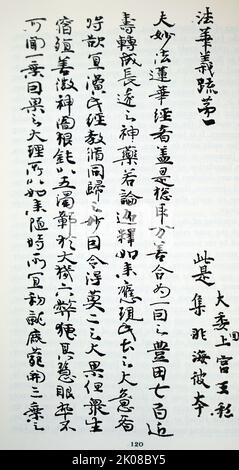 法華義疏第一
此是
大委国上宮王私
集非海彼本
夫妙法蓮華經者蓋是惣取万善合為一因之豊田七百近
壽轉成長遠之神藥若論迦釋如来應現此土之大意者
将欲宜演此經教脩同歸之妙因令得莫二之大果但衆生
宿殖善微神闇根鈍以五濁鄣於大機六弊掩其慧眼卒不
可聞一乗因果之大理所以如来随時所宜初就鹿苑開三乗之
120